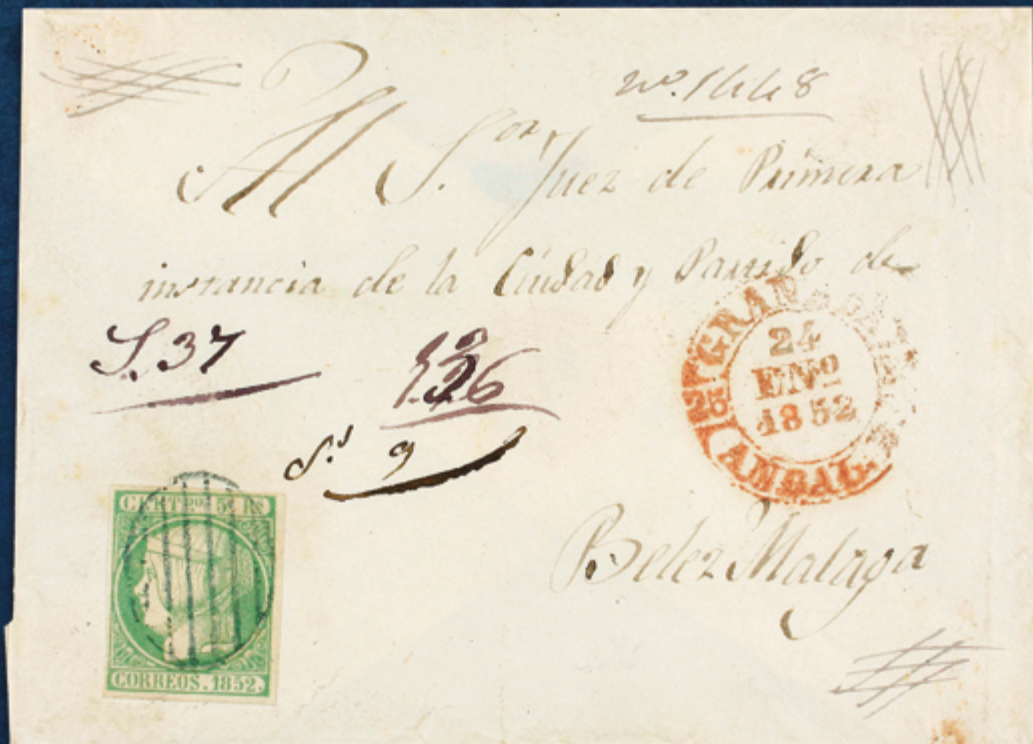 nº. 1448
Al S.or Juez de Primera
instancia de la Ciudad y Partido de
S. 37
GRANADA
24
ENº
1852
ANDAL. B.
9
Belez Malaga
CERTDO. 5 Rs
CORREOS. 1852.